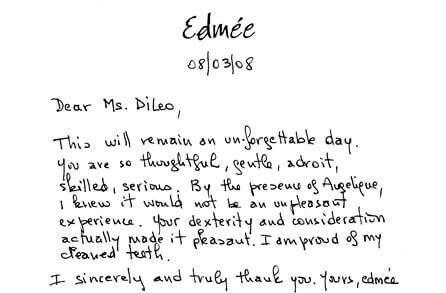 Edmée
08/03/08
Dear Ms. DiLeo,
This will remain an un-forgettable day.
You are so thoughtful, gentle, adroit,
skilled, serious. By the presence of Angelique,
I knew it would not be an unpleasant
experience. Your dexterity and consideration
actually made it pleasant. I am proud of my
cleaned teeth.
I sincerely and truly thank you. Yours, edmée